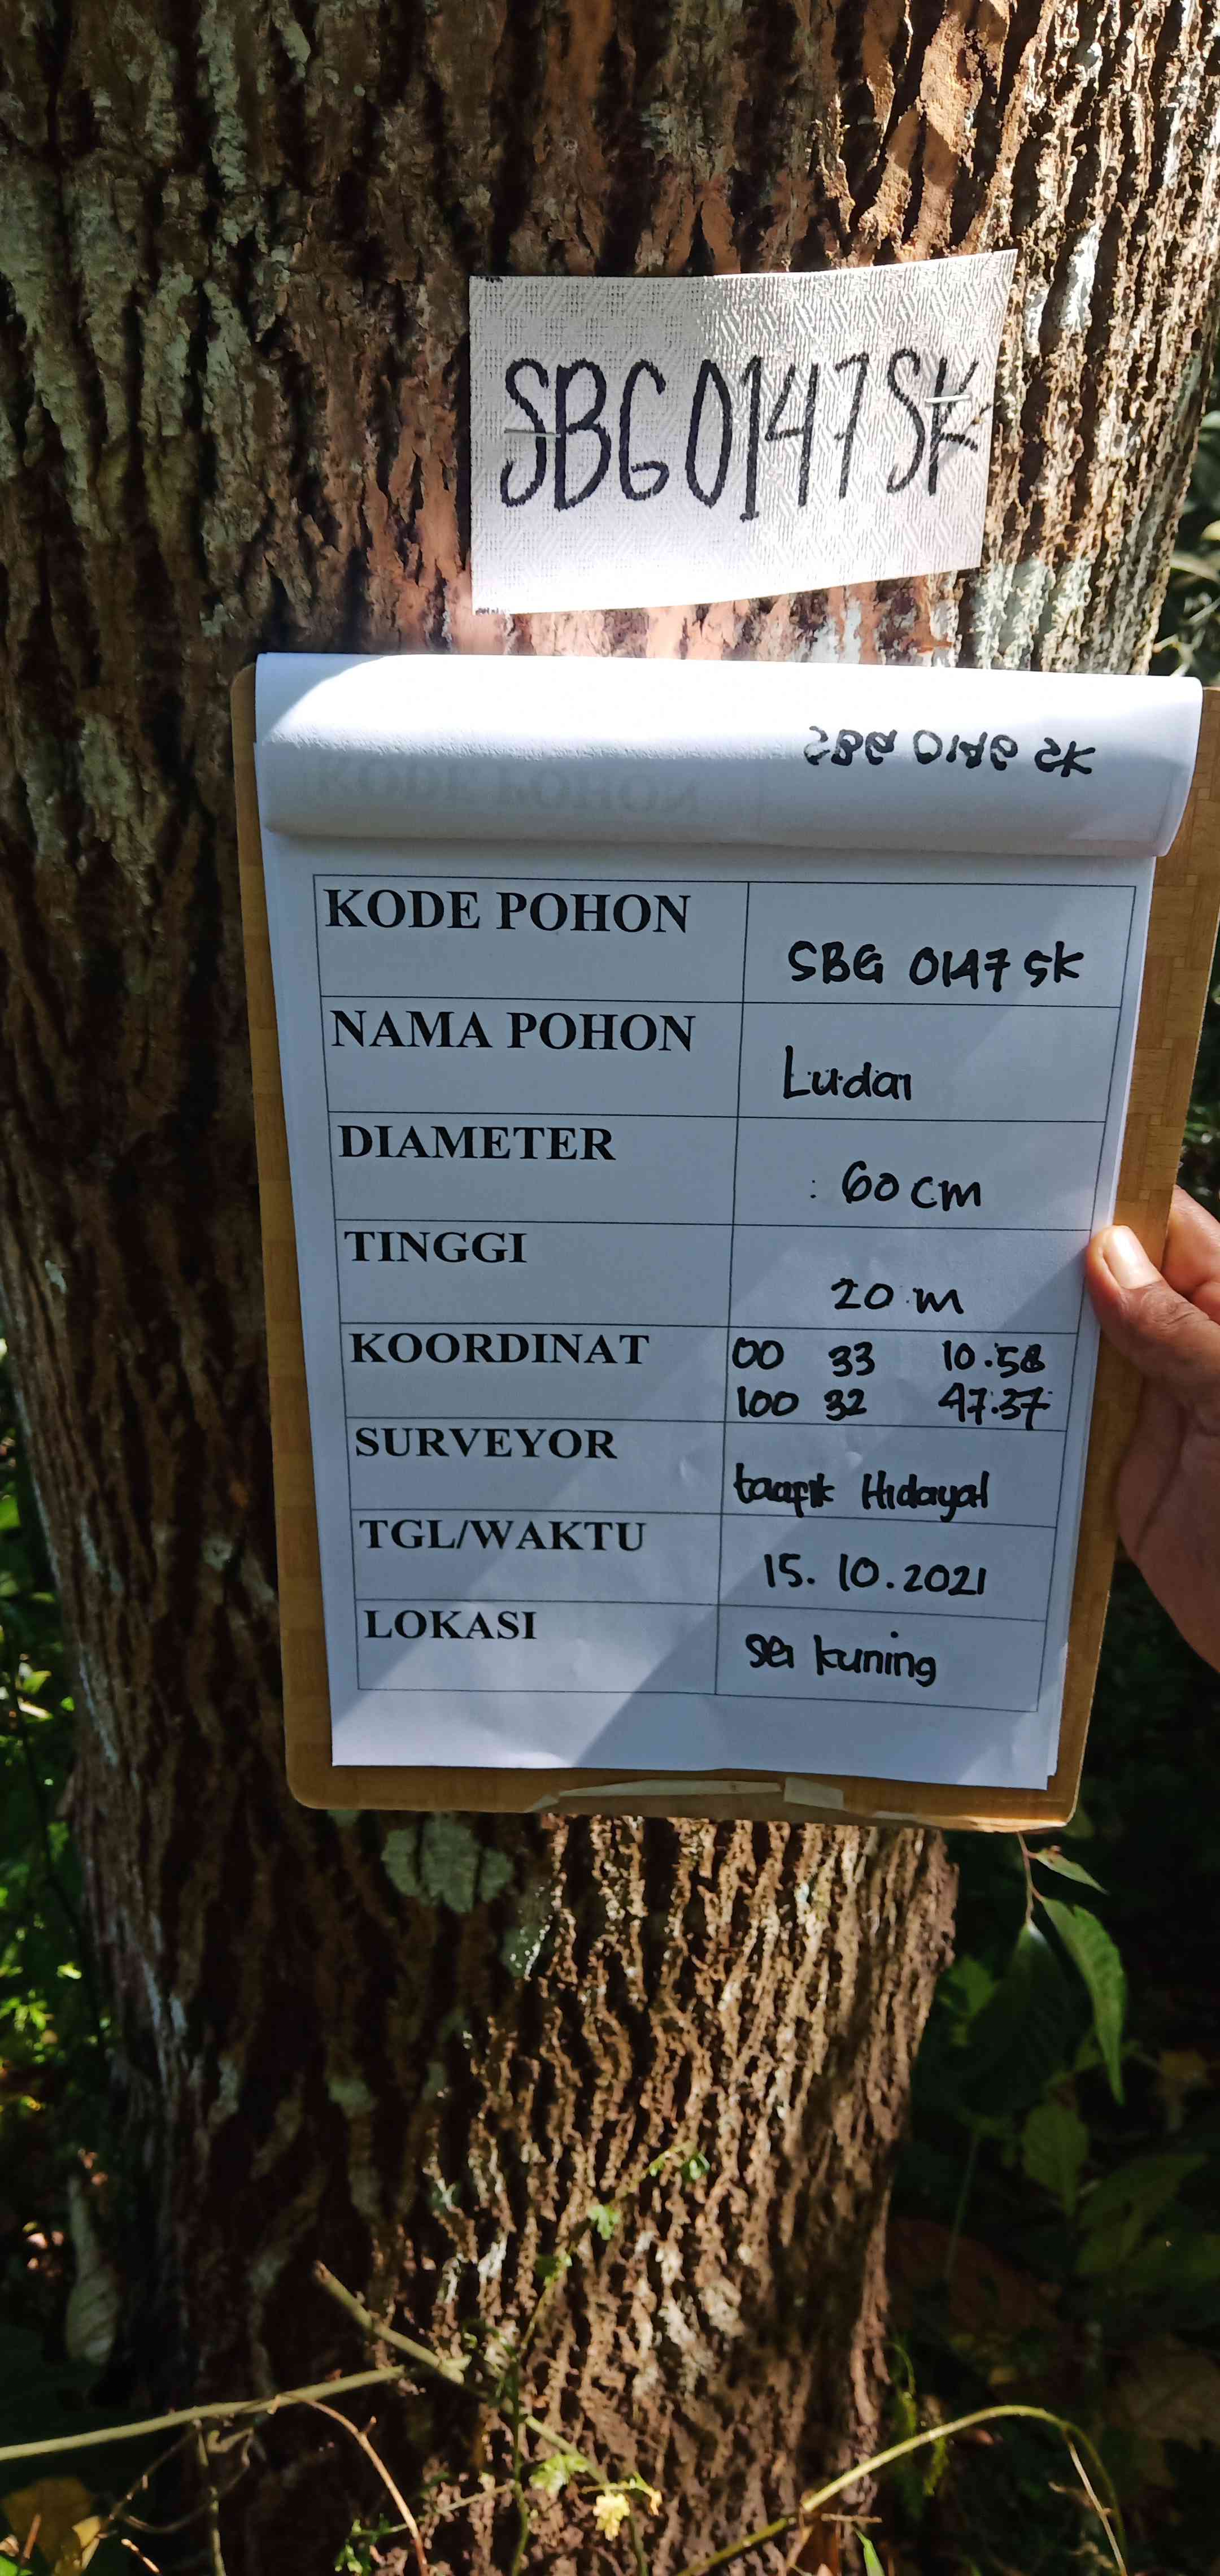 SBG0147SK
SBG 0146 SK
KODE POHON
KODE POHON
SBG 0147 SK
NAMA POHON
Ludai
DIAMETER
: 60 cm
TINGGI
20 m
KOORDINAT
00 33 10.58
100 32 47.37
SURVEYOR
taufik Hidayat
TGL/WAKTU
15. 10. 2021
LOKASI
sei kuning